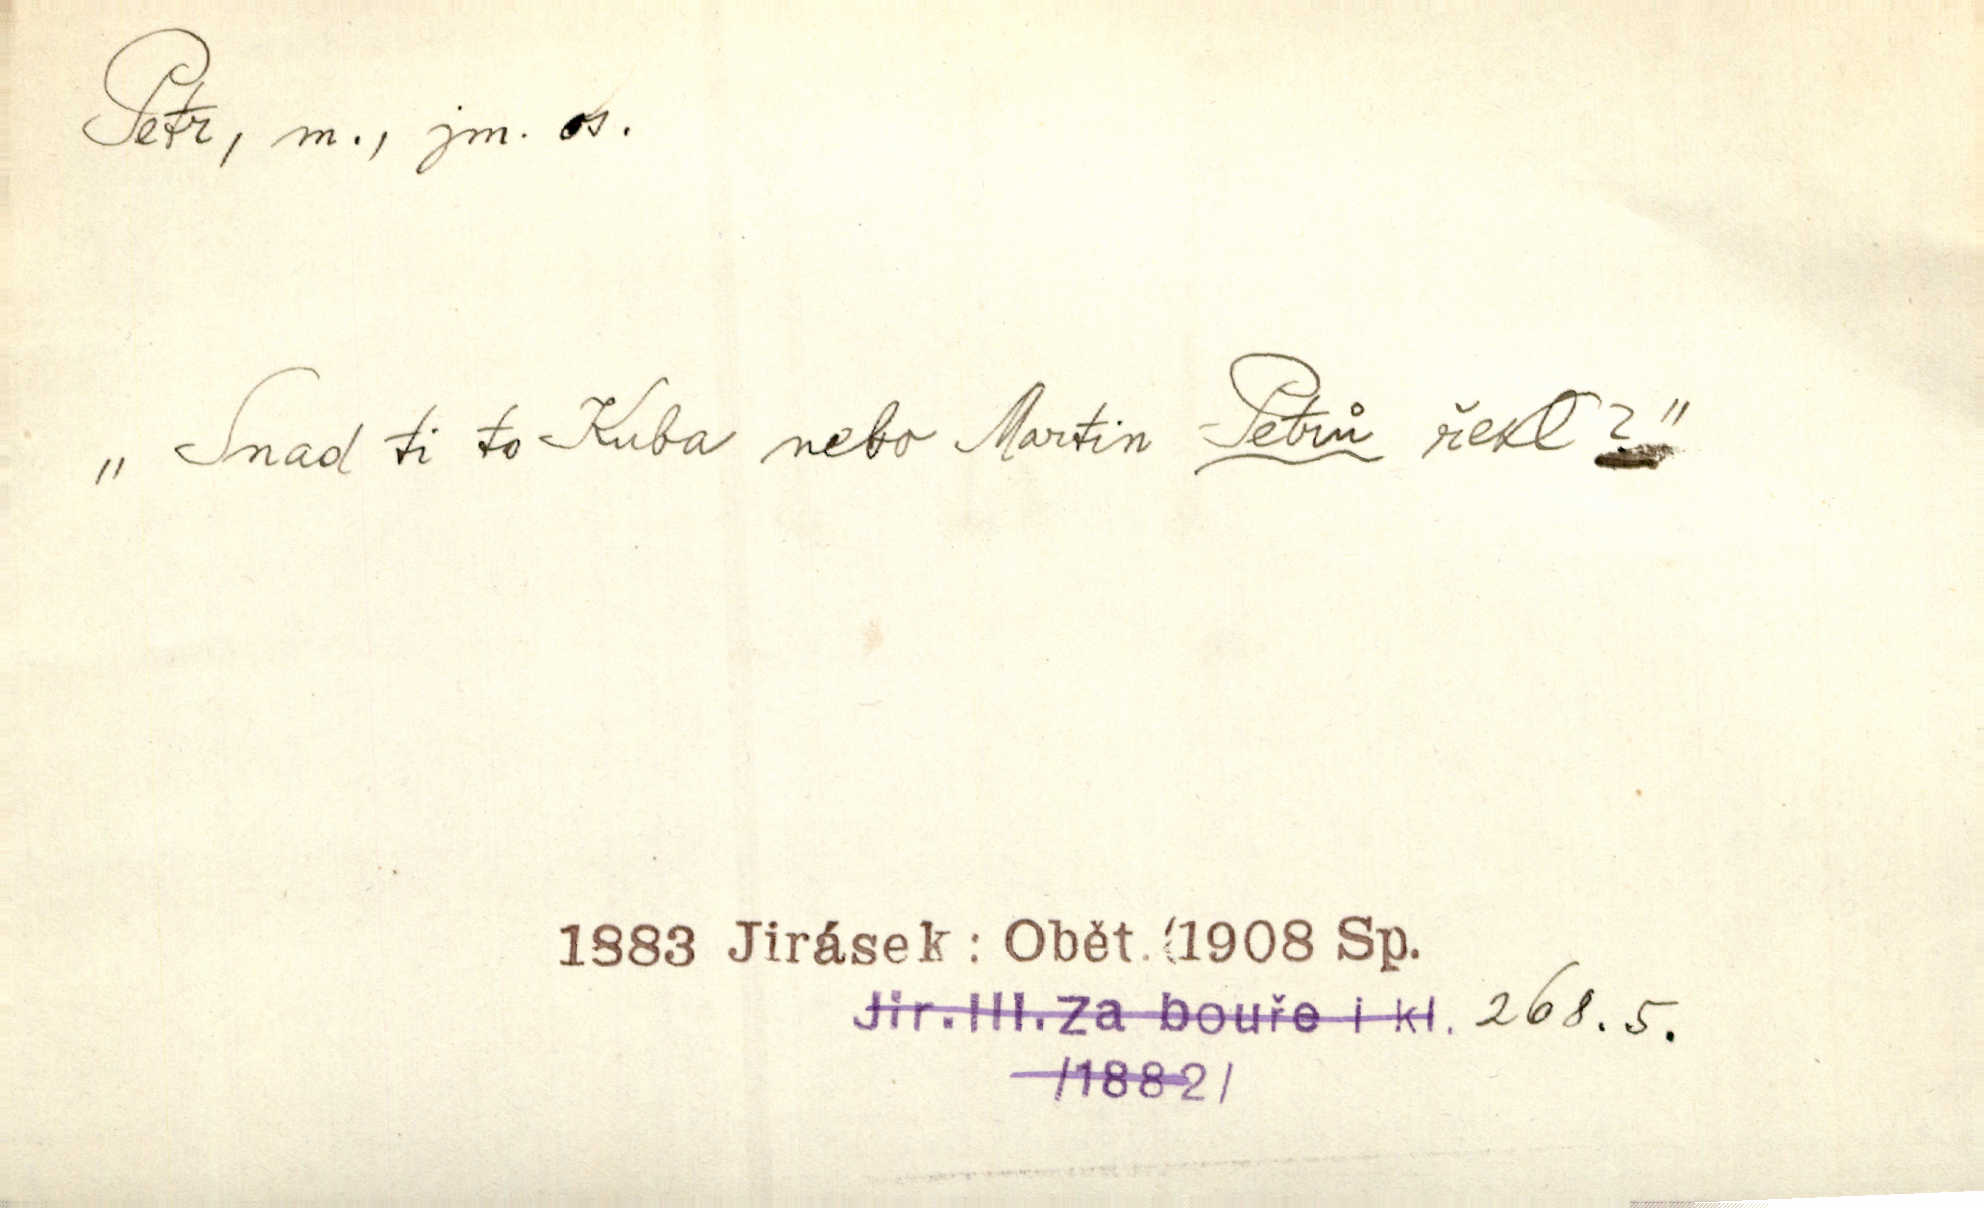 Petr, m., jm. os.
„Snad ti to Kuba nebo Martin Petrů řekl?"
1883 Jirásek: Obět. (1908 Sp.
Jir. III. Za bouře i kl. 268.5.
/1882/